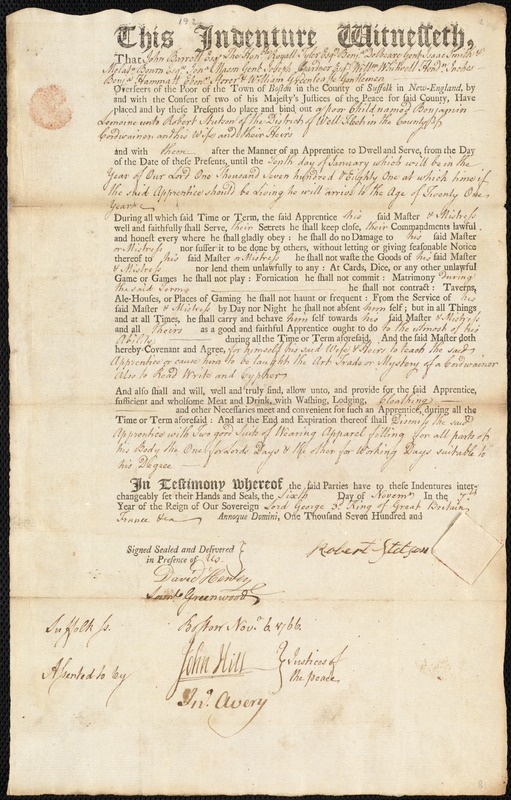 192
This Indenture Witnesseth,
That John Barrett Esqr. Tho. Hon. Royall Tyler Esqr. Benj. Dolbeare Gent. Isaac Smith &
Esqr. Tyson Gent. Joseph Gardner Esqr. Wm. Whitwell
& William Greenleafe Gentlemen
Overseers of the Poor of the Town of Boston in the County of Suffolk in New-England, by
and with the Consent of two of his Majesty's Justices of the Peace for said County, Have
placed and by these Presents do place and bind out a Poor Child named Benjamin
Lemoine unto Robert Stutson of the District of Well Fleet in the County of
Cordwainer an this Wife and their Heirs
and with them after the Manner of an Apprentice to Dwell and Serve, from the Day
of the Date of these Presents, until the Tenth day of January which will be in the
Year of Our Lord One Thousand Seven hundred & Eighty One at which time if
the said Apprentice should be Living he will arrive to the Age of Twenty One
Years
During all which said Time or Term, the said Apprentice his said Master & Mistress
well and faithfully shall Serve, their Secrets he shall keep close, their Commandments lawful
and honest every where he shall gladly obey: he shall do no Damage to his said Master
or Mistress, nor suffer it to be done by others, without letting or giving seasonable Notice
thereof to his said Master or Mistress he shall not waste the Goods of his said Master
& Mistress nor lend them unlawfully to any: At Cards, Dice, or any other unlawful
Game or Games he shall not play: Fornication he shall not commit: Matrimony during
the said Term he shall not contract: Taverns,
Ale-Houses, or Places of Gaming he shall not haunt or frequent: From the Service of his
said Master & Mistress by Day nor Night he shall not absent him self; but in all Things
and at all Times, he shall carry and behave him self towards his said Master & Mistress
and all Theirs as a good and faithful Apprentice ought to do to the utmost of his
Ability during all the Time or Term aforesaid. And the said Master doth
hereby Covenant and Agree, for himself his said Wife & Heirs to teach the said
Apprentice or cause him to be taught the Art Trade or Mystery of a Cordwainer
Also to Read Write and Cypher
And also shall and will, well and truly find, allow unto, and provide for the said Apprentice,
sufficient and wholsome Meat and Drink, with Washing, Lodging, Cloathing
and other Necessaries meet and convenient for such an Apprentice, during all the
Time or Term aforesaid: And at the End and Expiration thereof shall Dismiss the said
Apprentice with Two good Suits of Wearing Apparel fitting for all parts of
his Body the One for Lords Days & the other for Working Days suitable to
his Degree
In Testimony whereof, the said Parties have to these Indentures inter-
changeably set their Hands and Seals, the Sixth Day of Novemr. In the 7th
Year of the Reign of Our Sovereign Lord George 3d. King of Great Britain
France &ca Annoque Domini, One Thousand Seven Hundred and
Signed Sealed and Delivered
in Presence of Us.
Robert Stetson
David Henley
Saml. Greenwood
Suffolk ss. Boston Novr. 6. 1766.
Assented to by John Hill Justices of
the peace
Jno. Avery